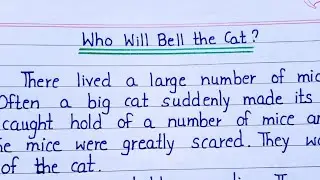 Who Will Bell the Cat?
There lived a large number of mic
Often a big cat suddenly made its
caught hold of a number of mice an
he mice were greatly scared. They wo
of the cat.